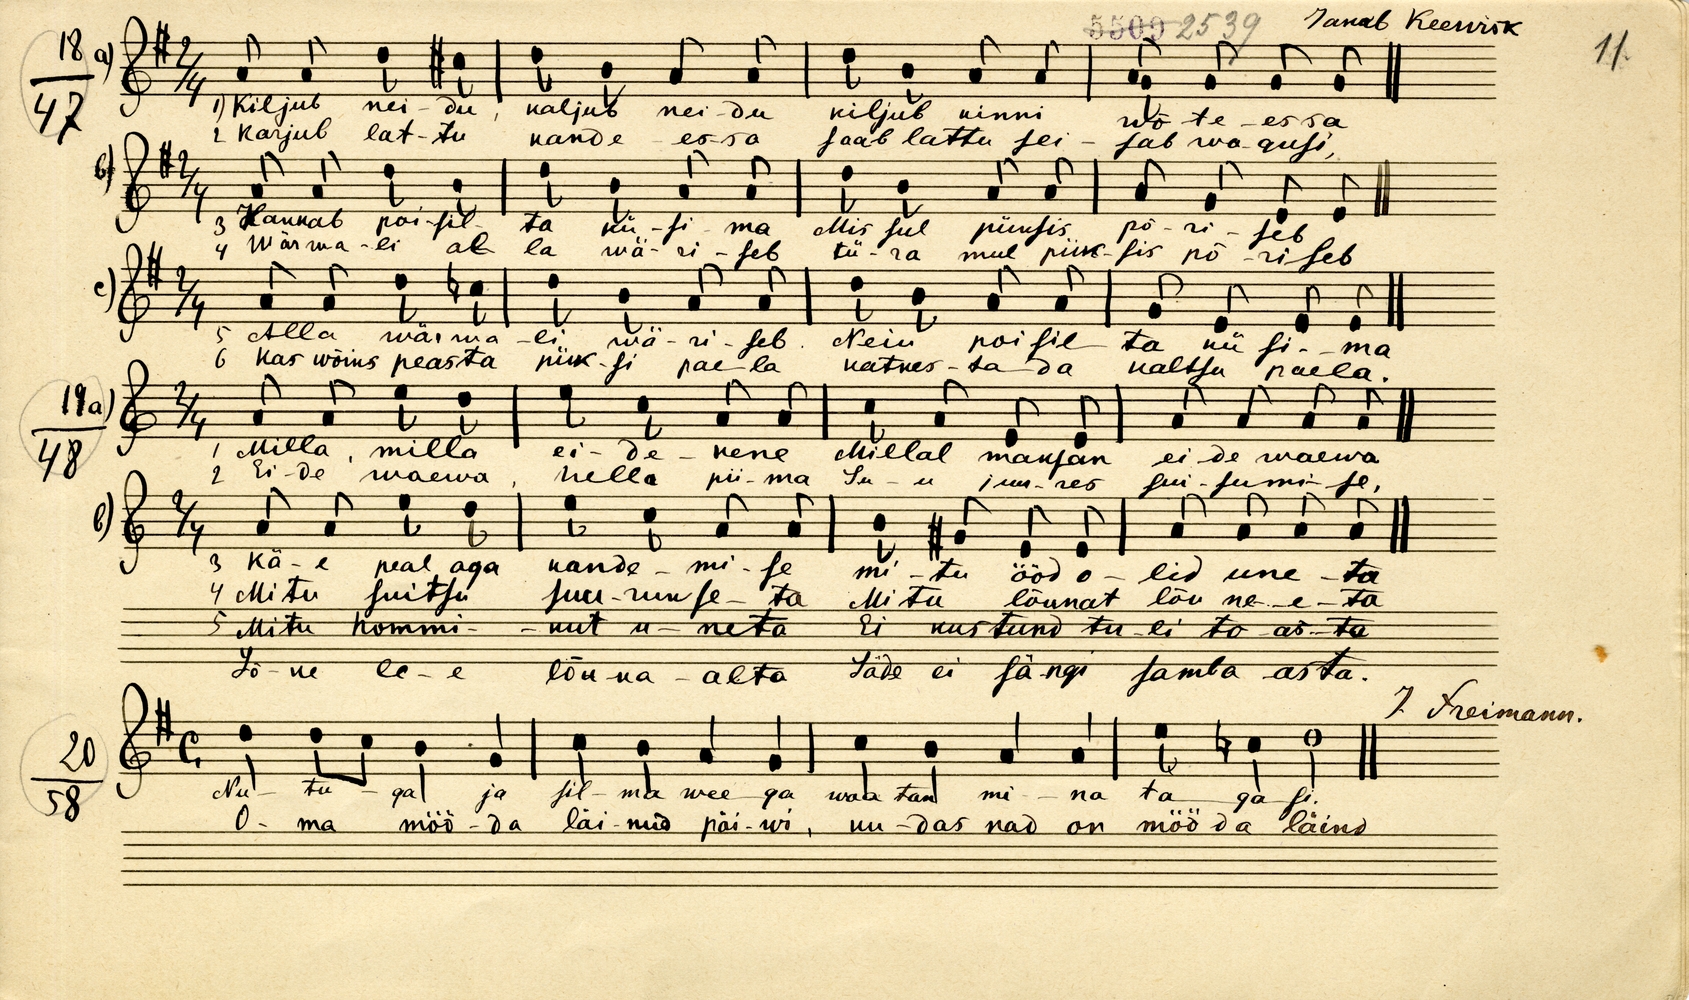 5509 2539 Janab Keerwisk
11.
18 a)
47
1) Kiljub nei-du, kaljub nei-du kiljub kinni wö-te-essa
2 Karjub lat-tu kande-essa saab lattu sei-sab wa-gusi,
b)
3 Hannab poi-sil-ta kü-si-ma Mis sul püksis pö-ri-seb
4 Wärwa-li al la wä-ri-seb tü-ra mul pük-sis pö-riseb
c)
5 Alla wärwa-li wä-ri-seb. Neiu poisil ta kü si-ma
6 Kas wöiks peasta pük-si pae-la katkes-ta da kaltsu paela.
19 a)
48
1 Milla, milla ei-de-kene Millal maksan ei-de waewa
2 Ei-de waewa, hella pii-ma Su-u juu-res sui-sumi-se,
b)
3 Kä-e peal aga kande-mi-se mi-tu ööd o-lid une-ta
4 Mitu suitsu suu-rukse-ta Mitu lõunat lõu ne-e-ta
5 Mitu hommi-kut u-neta Ei kustund tu-li to-as-ta
Sö-ne le-e lõu-na-alta Säde ei sä-ngi samba asta.
J. Freimann.
20
58
Nu-tu-ga ja sil-ma wee ga waa tan mi-na ta ga si.
O-ma möö-da läi-nud päi-wi, ku-das nad on möö da läind